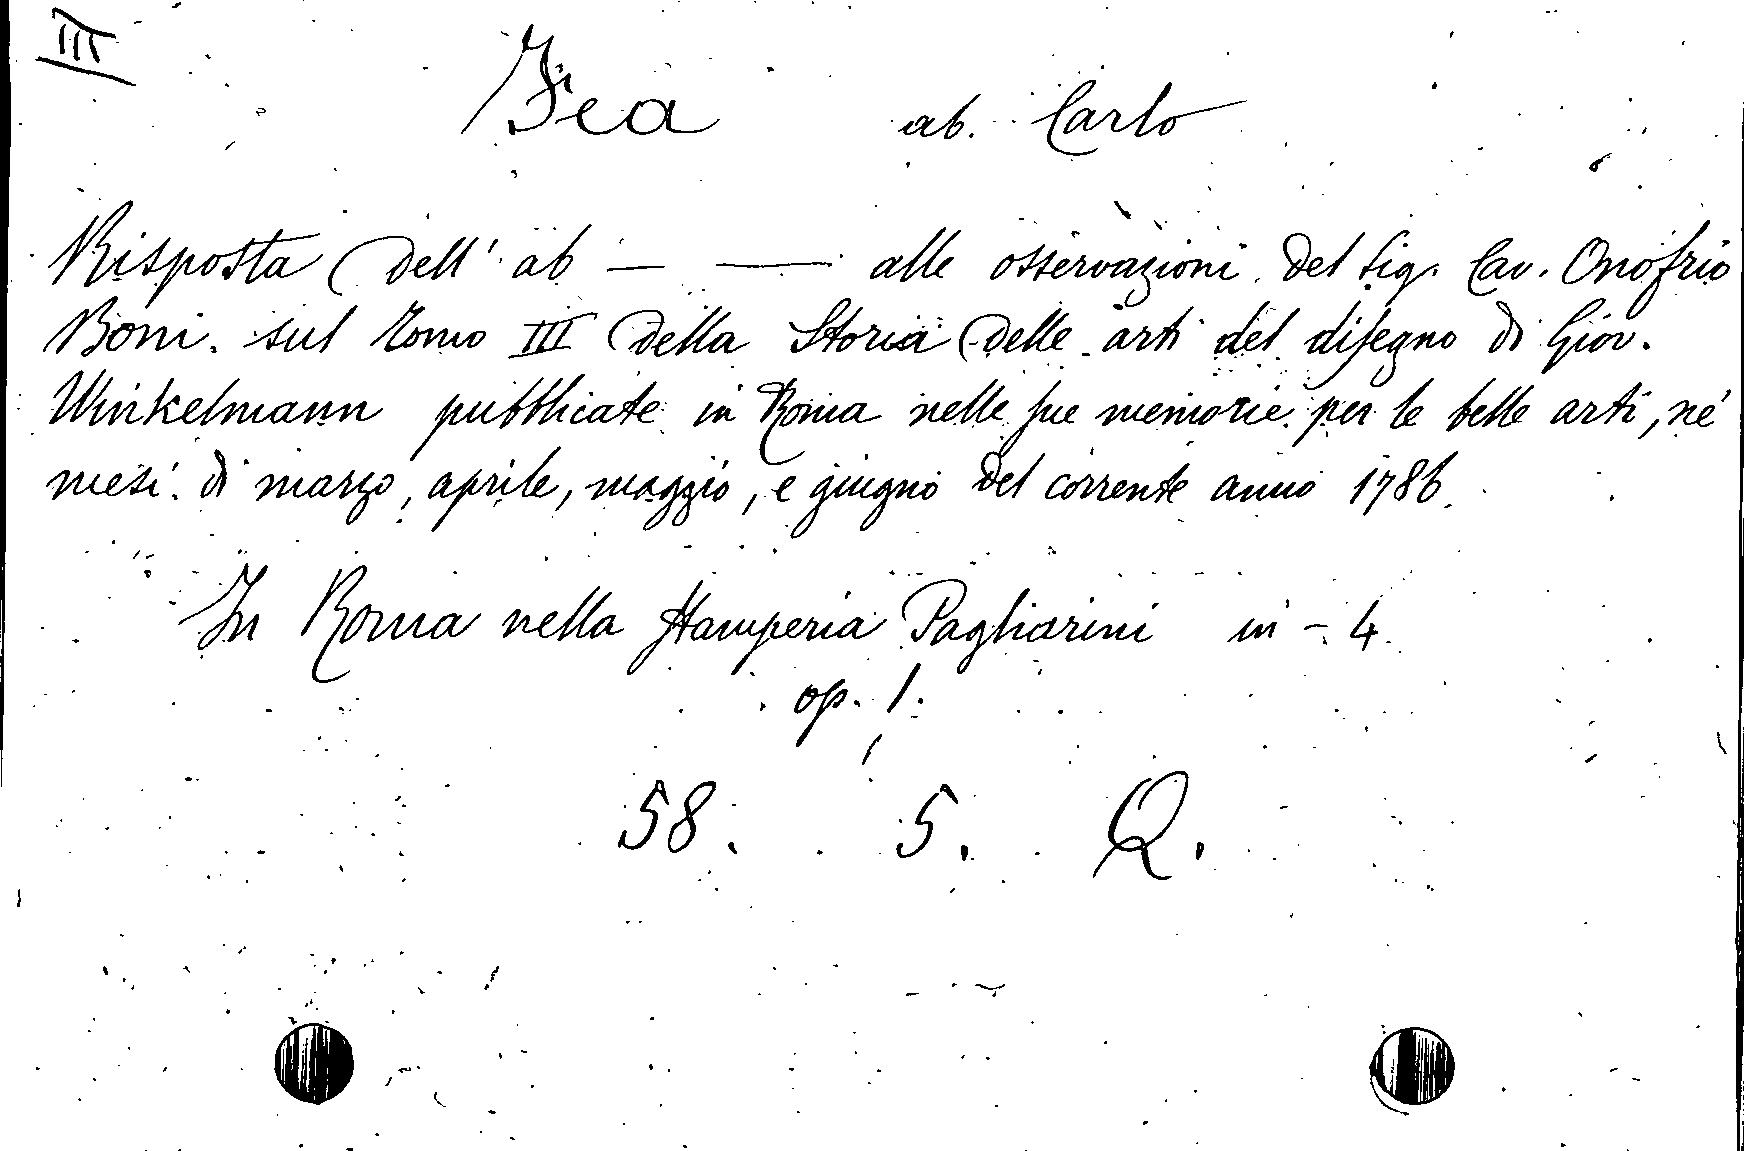 III
Fea ab. Carlo
Risposta dell' ab — — alle osservazioni del sig. Cav. Onofrio
Boni. sul tomo III della Storia delle arti del disegno di Giov.
Winkelmann pubblicate in Roma nelle sue memorie per le belle arti, ne'
mesi di marzo, aprile, maggio, e giugno del corrente anno 1786.
In Roma nella stamperia Pagliarini in - 4.
op. 1.
58. 5. Q.